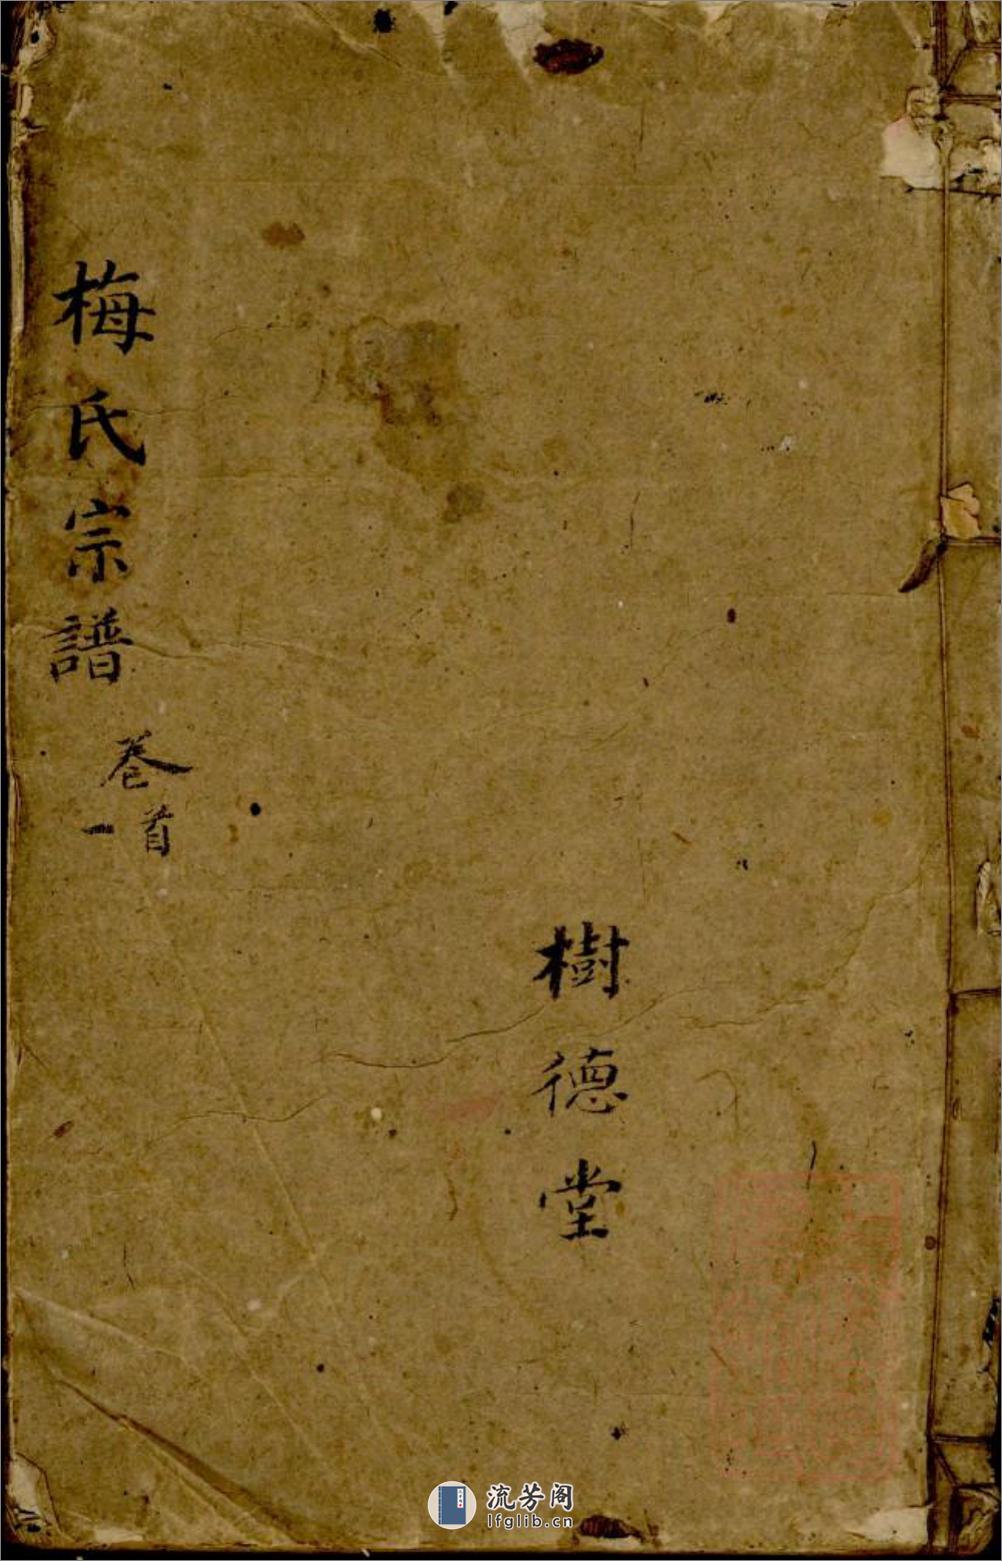 樹德堂
梅氏宗譜
卷首
一
流芳阁
lfglib.cn